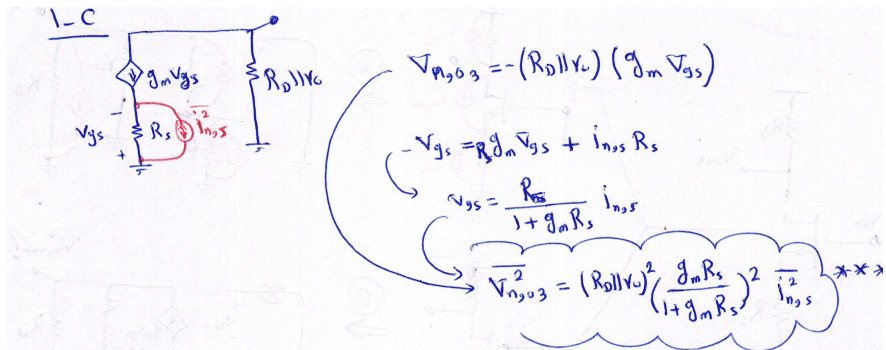 1-C
g_m v_gs
R_D||r_o
- v_gs +
R_s
i²_n,s
V_n,o3 = -(R_D||r_o) (g_m V_gs)
-V_gs = R_s g_m V_gs + i_n,s R_s
v_gs = R_s / (1 + g_m R_s) i_n,s
V²_n,o3 = (R_D||r_o)² (g_m R_s / (1 + g_m R_s))² i²_n,s ***